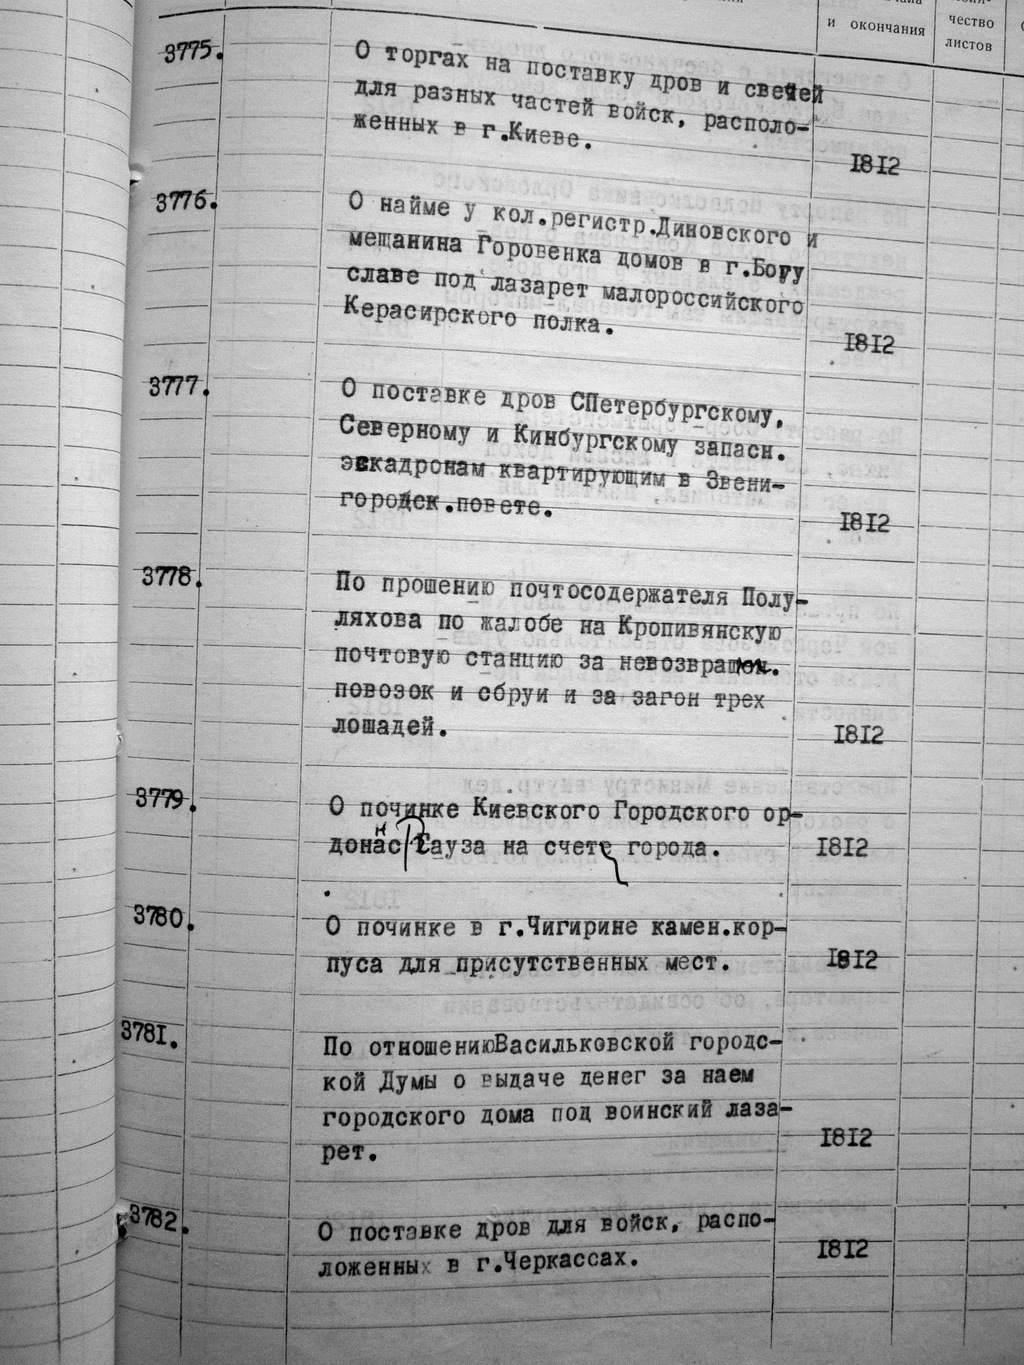 и окончания
чество
листов
3775.
О торгах на поставку дров и свечей
для разных частей войск, располо-
женных в г.Киеве.
1812
3776.
О найме у кол.регистр.Диновского и
мещанина Горовенка домов в г.Богу
славе под лазарет малороссийского
Керасирского полка.
1812
3777.
О поставке дров СПетербургскому,
Северному и Кинбургскому запасн.
эскадронам квартирующим в Звени-
городск.повете.
1812
3778.
По прошению почтосодержателя Полу-
ляхова по жалобе на Кропивянскую
почтовую станцию за невозвращен.
повозок и сбруи и за загон трех
лошадей.
1812
3779.
О починке Киевского Городского ор-
донанс гауза на счет города.
1812
3780.
О починке в г.Чигирине камен.кор-
пуса для присутственных мест.
1812
3781.
По отношениюВасильковской городс-
кой Думы о выдаче денег за наем
городского дома под воинский лаза-
рет.
1812
3782.
О поставке дров для войск, распо-
ложенных в г.Черкассах.
1812